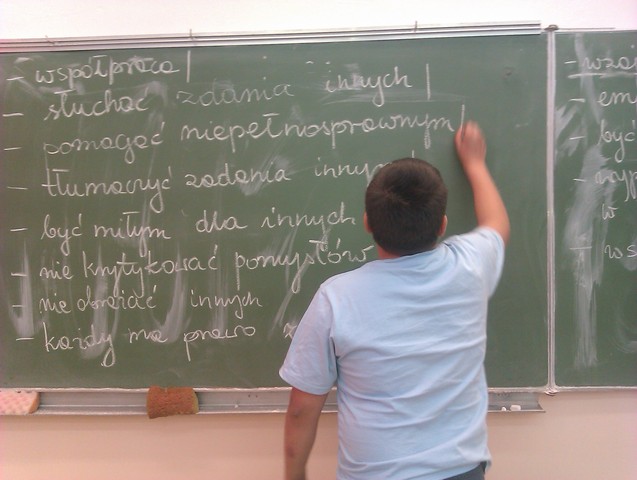 - współpraca |
- słuchać zdania innych |
- pomagać niepełnosprawnym |
- tłumaczyć zadania
- być miłym dla innych
- nie krytykować pomysłów
- nie obrażać innych
- każdy ma prawo
-
-
- być
-
w
-